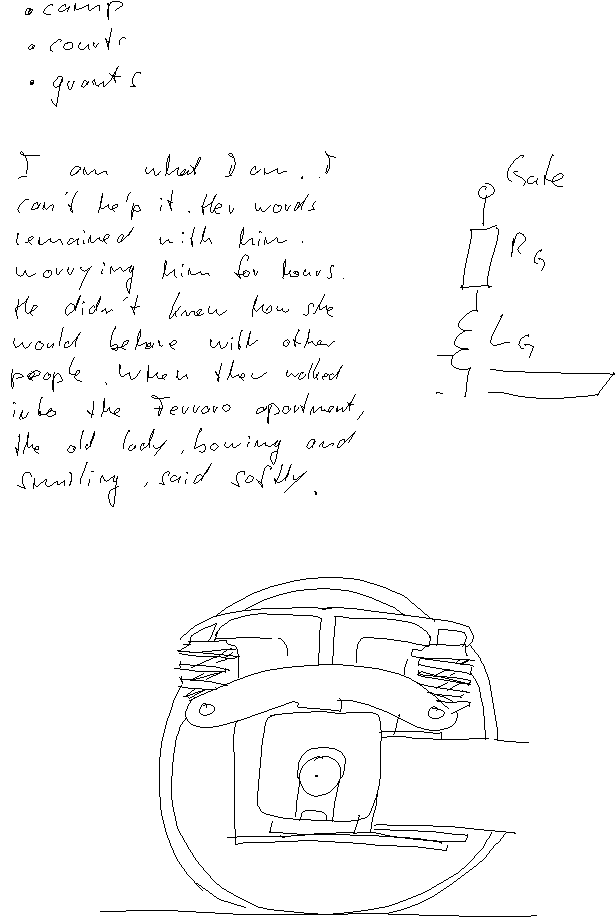 • camp
• courts
• grants
I am what I am. I
can't help it. Her words
remained with him.
worrying him for hours.
He didn't know how she
would behave with other
people. When they walked
into the Ferraro apartment,
the old lady, bowing and
smiling, said softly.
Gate
R_G
L_G